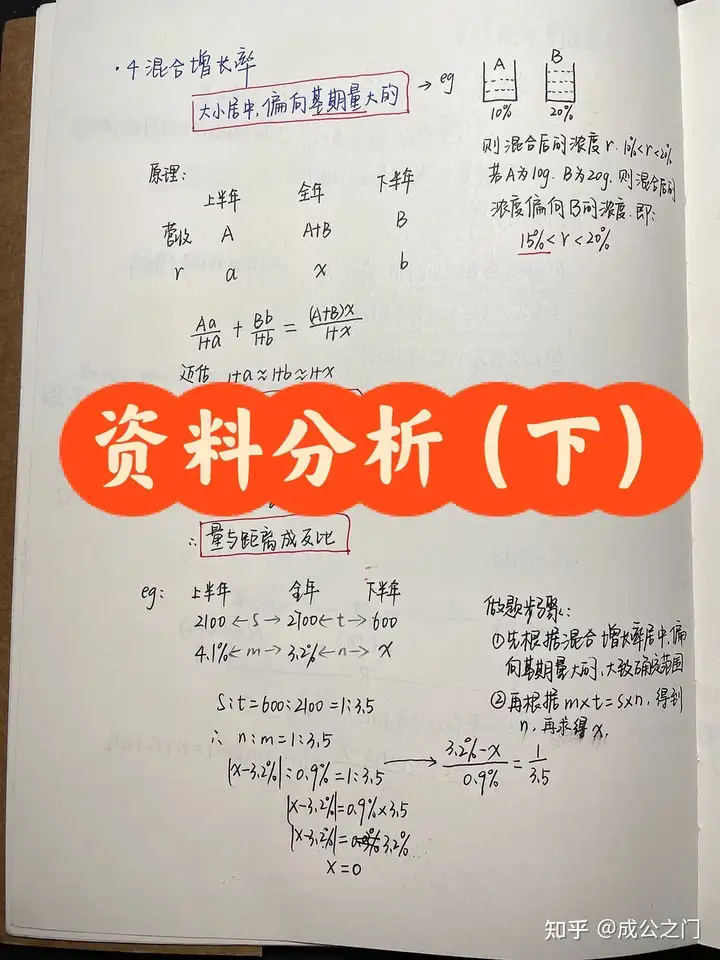 ·4 混合增长率
大小居中,偏向基期量大的
→ eg
A B
10% 20%
则混合后的浓度r. 10%<r<20%
若A为10g. B为20g,则混合后的
浓度偏向B的浓度.即:
15%<r<20%
原理:
上半年 全年 下半年
营收 A A+B B
r a x b
Aa/1+a + Bb/1+b = (A+B)x/1+x
近估 1+a≈1+b≈1+x
资料分析(下)
∴ 量与距离成反比
eg: 上半年 全年 下半年
2100 ←s→ 2700 ←t→ 600
4.1% ←m→ 3.2% ←n→ x
s:t=600:2100=1:3.5
∴ n:m=1:3.5
|x-3.2%|:0.9%=1:3.5 → 3.2%-x/0.9% = 1/3.5
|x-3.2%|=0.9%×3.5
|x-3.2%|= 3.2%
x=0
做题步骤:
①先根据混合增长率居中,偏
向基期量大的,大致确定范围
②再根据m×t=s×n,得到
n,再求得x.
知乎 @成公之门